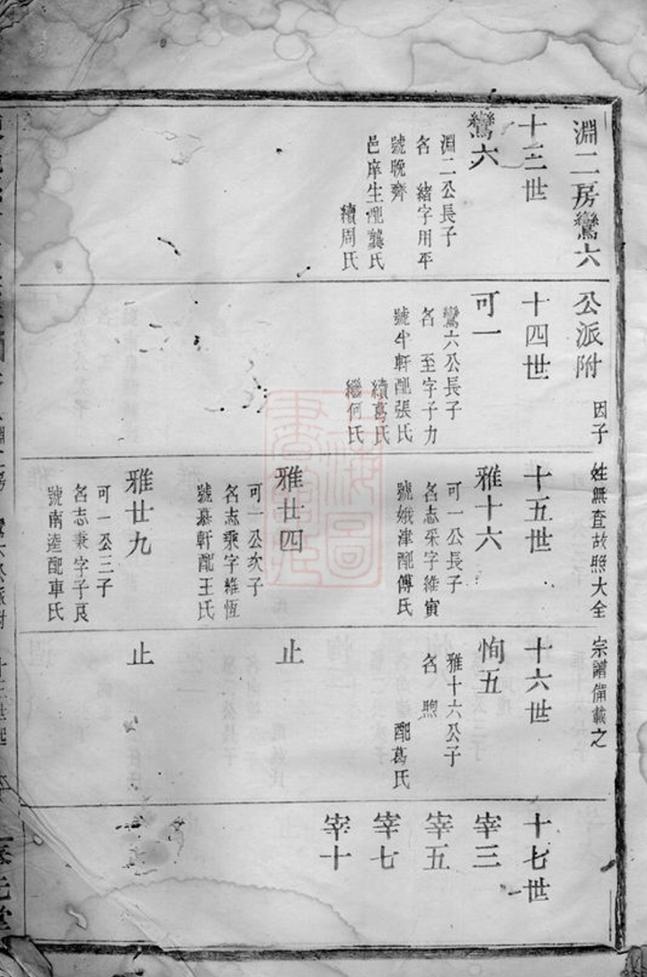 淵二房鸞六公派附因子姓無查故照大全宗譜備載之
十三世
鸞六
淵二公長子
名緒字用平
號晚齊
邑庠生配龔氏
續周氏
十四世
可一
鸞六公長子
名至字子力
號半軒配張氏
續葛氏
繼何氏
十五世
雅十六
可一公長子
名志采字維寅
號娥津配傅氏
雅廿四
可一公次子
名志乘字維恆
號慕軒配王氏
雅廿九
可一公三子
名志秉字子良
號南逵配車氏
十六世
恂五
雅十六公子
名煦
配葛氏
止
止
十七世
宰三
宰五
宰七
宰十